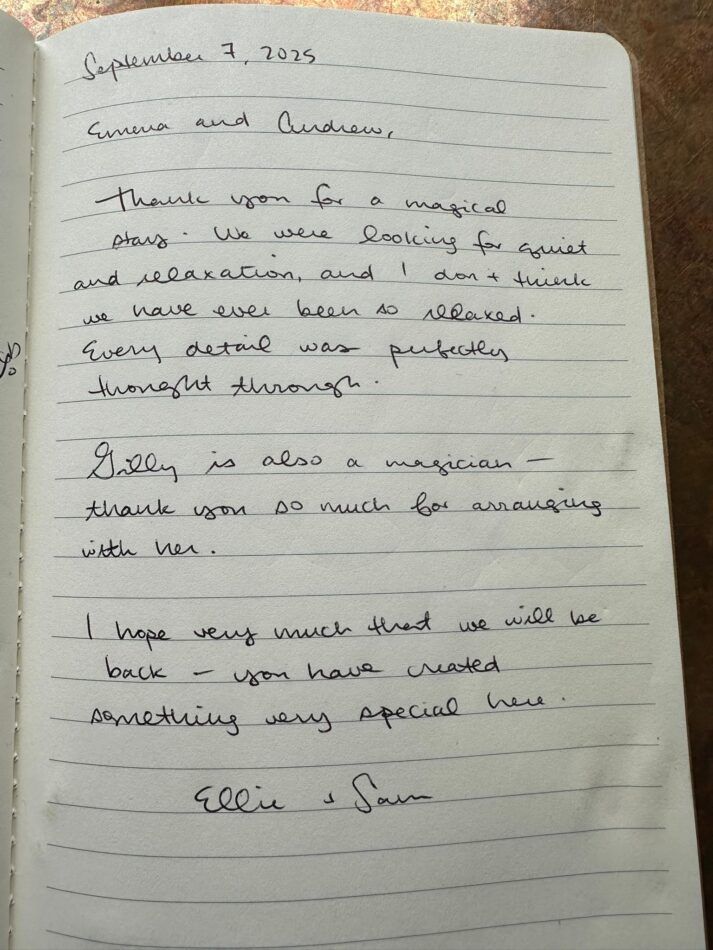 September 7, 2025
Emma and Andrew,
Thank you for a magical
stay. We were looking for quiet
and relaxation, and I don't think
we have ever been so relaxed.
Every detail was perfectly
thought through.
Gilly is also a magician —
thank you so much for arranging
with her.
I hope very much that we will be
back — you have created
something very special here.
Ellie & Sam